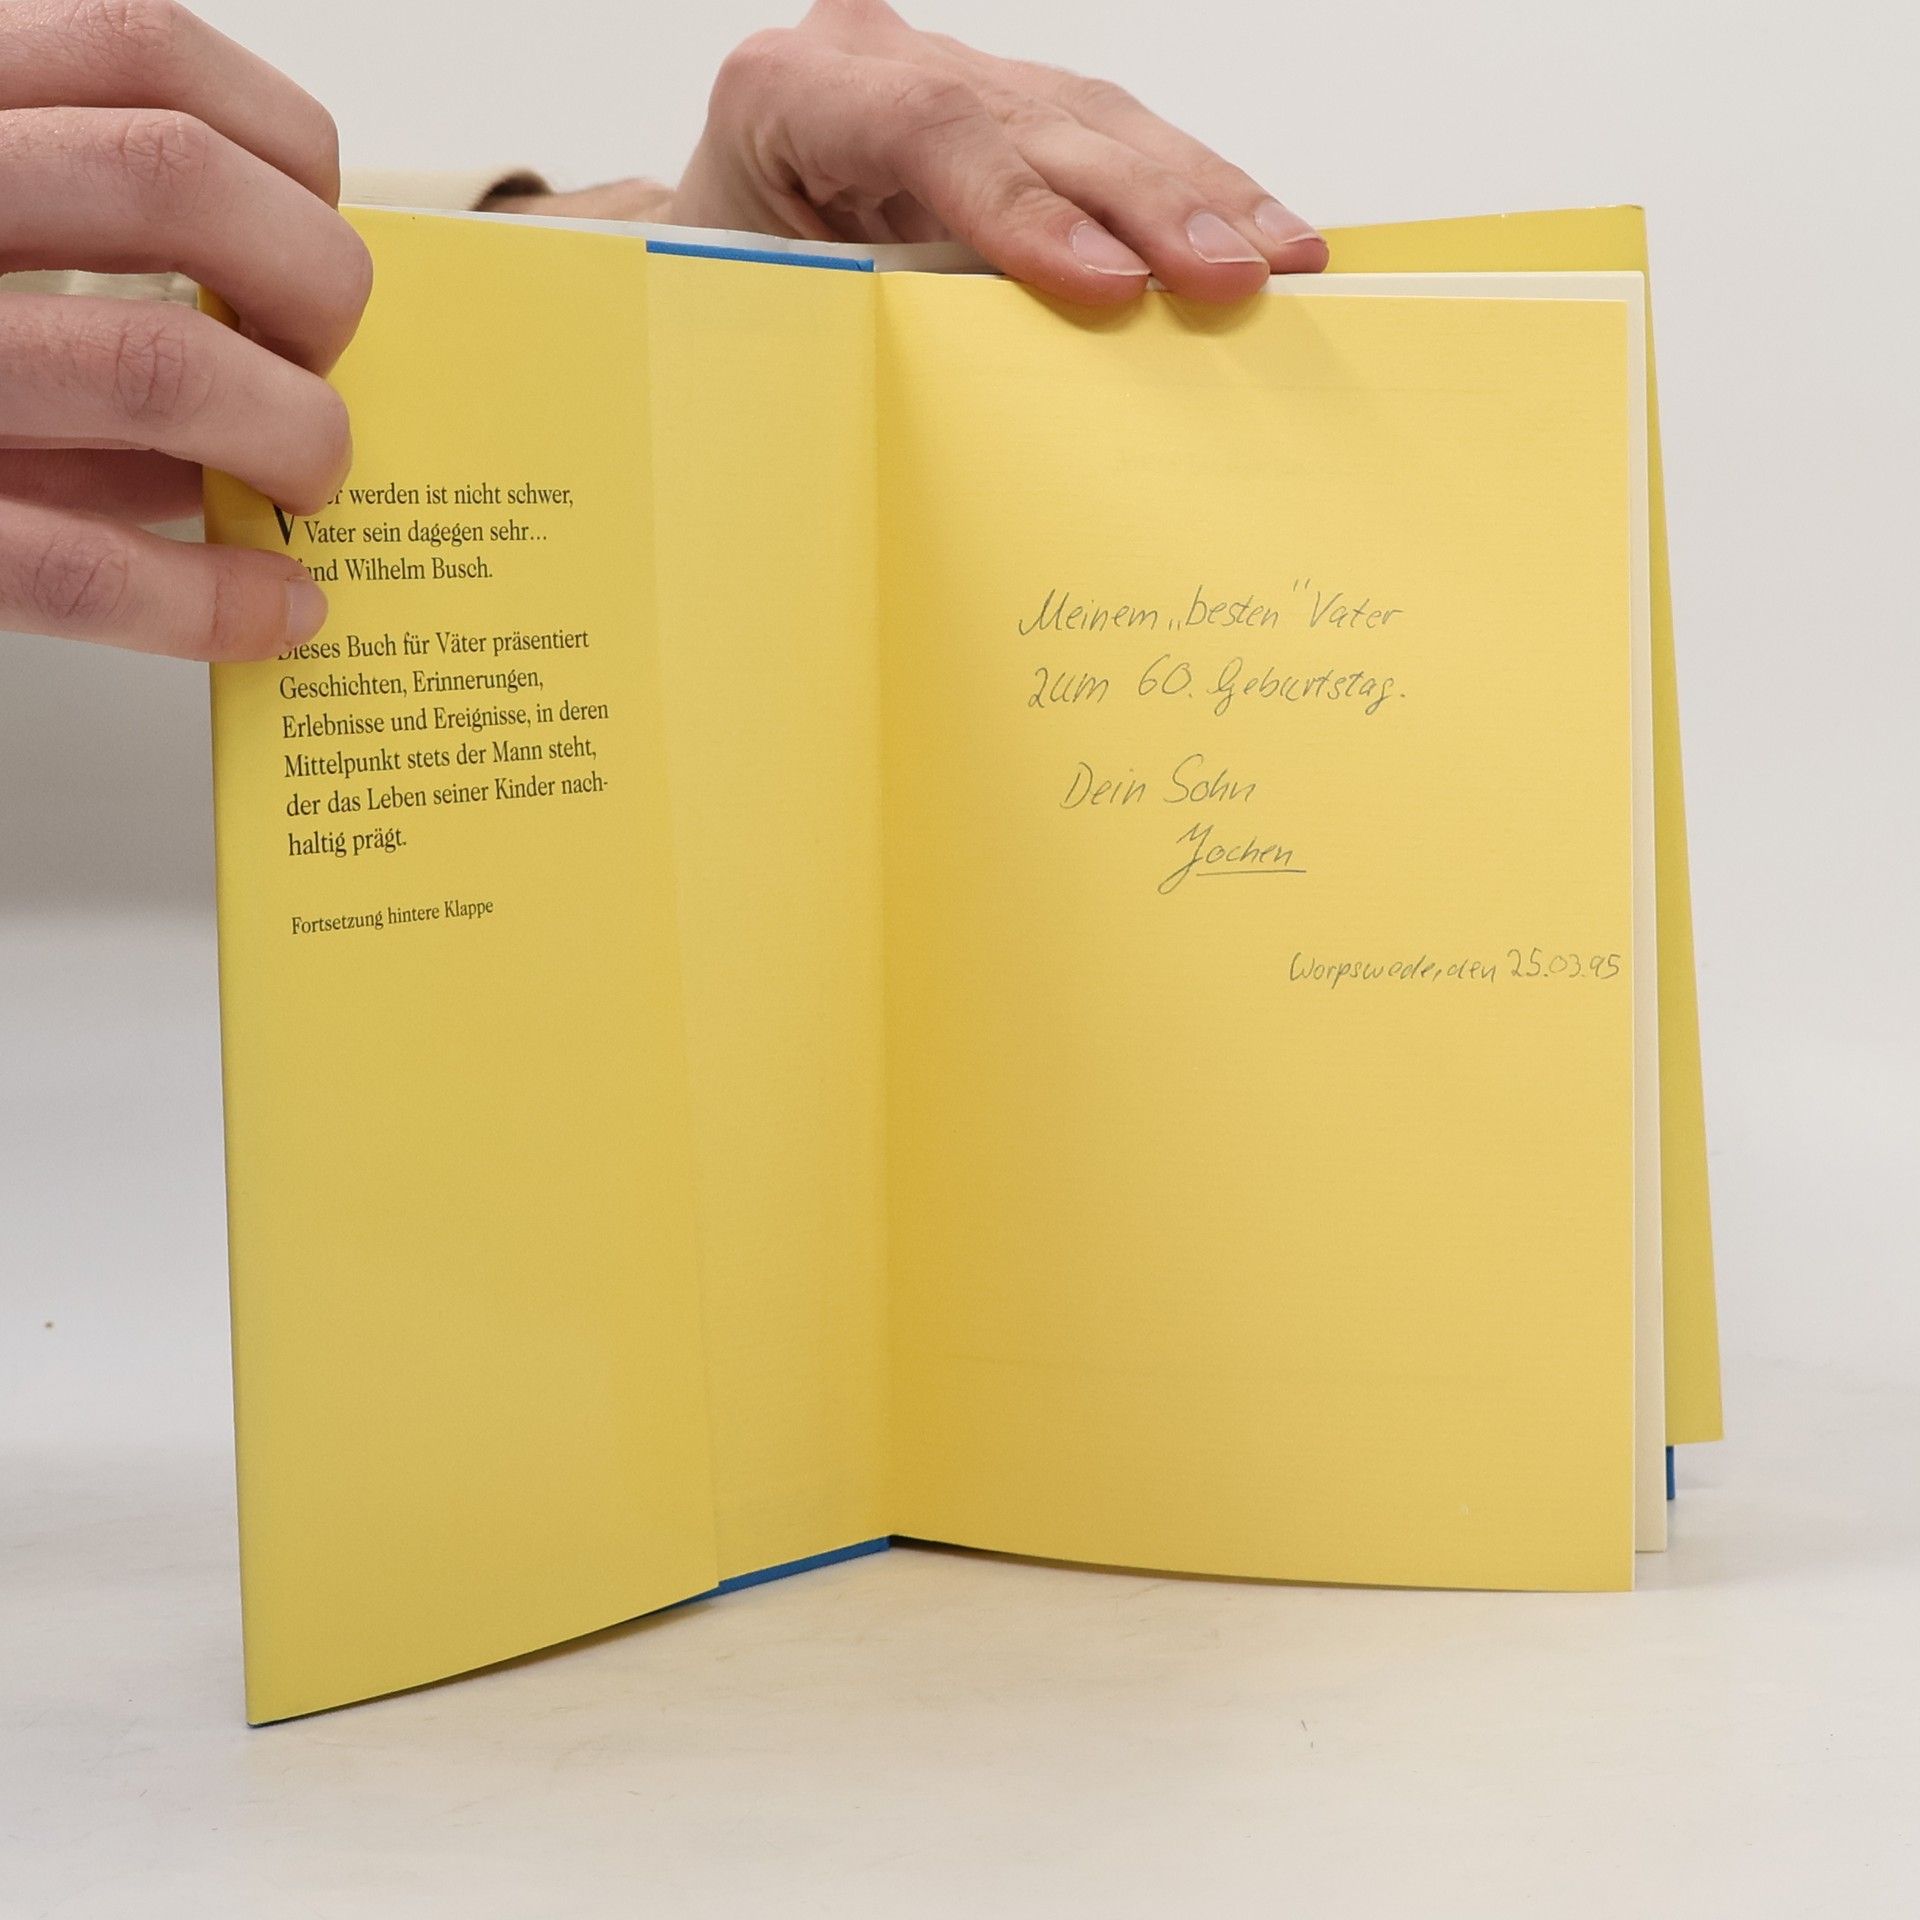 werden ist nicht schwer,
Vater sein dagegen sehr...
Wilhelm Busch.
Dieses Buch für Väter präsentiert
Geschichten, Erinnerungen,
Erlebnisse und Ereignisse, in deren
Mittelpunkt stets der Mann steht,
der das Leben seiner Kinder nach-
haltig prägt.
Fortsetzung hintere Klappe
Meinem „besten" Vater
zum 60. Geburtstag.
Dein Sohn
Jochen
Worpswede, den 25.03.95